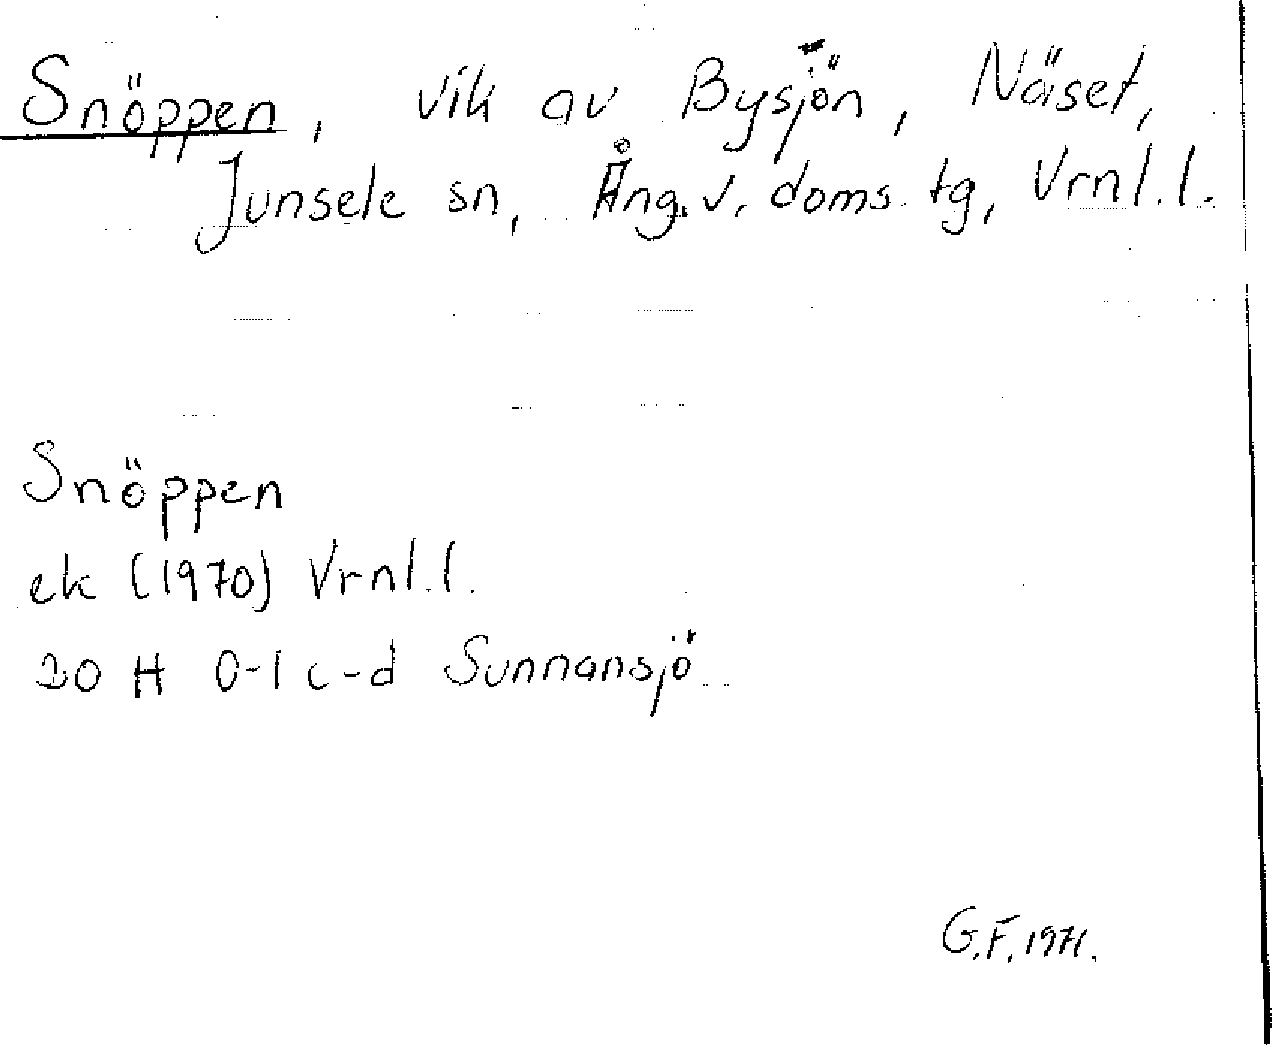 Snöppen, vik av Bysjön, Näset,
Junsele sn, Ång. v. doms. tg, Vrnl. l.
Snöppen
ek (1970) Vrnl. l.
20 H 0-1 c-d Sunnansjö
G.F. 1971.